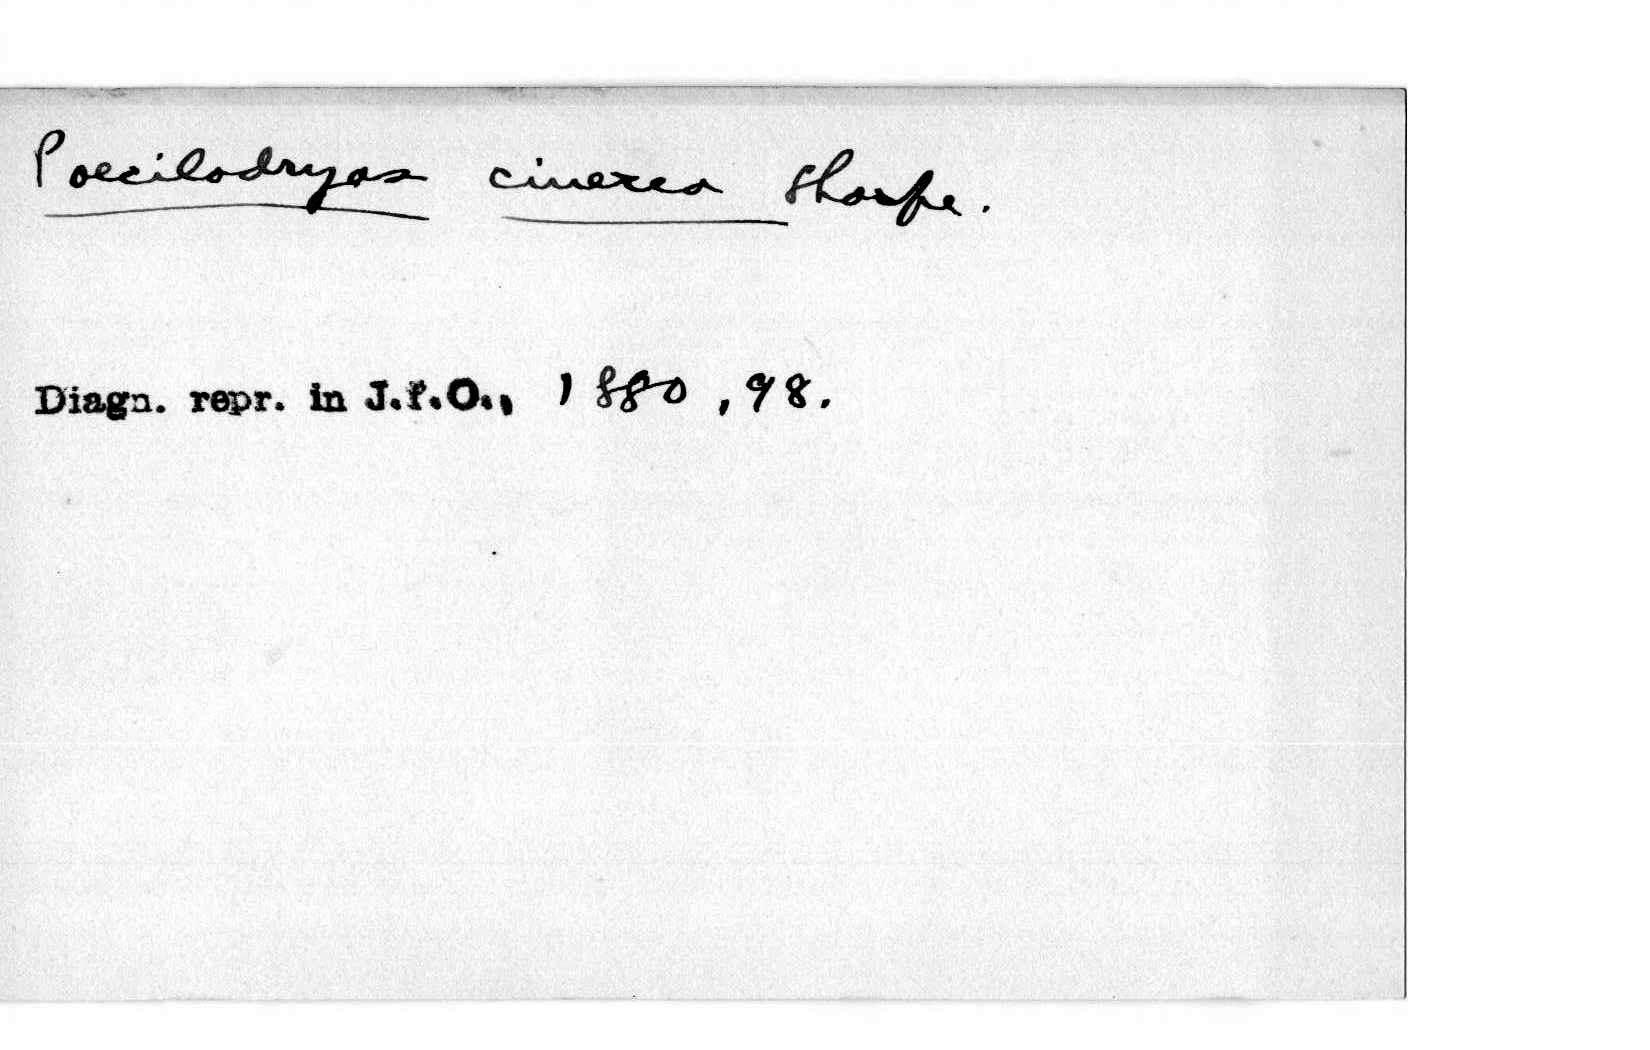 Poecilodryas cinerea Sharpe.
Diagn. repr. in J.f.O., 1880, 98.